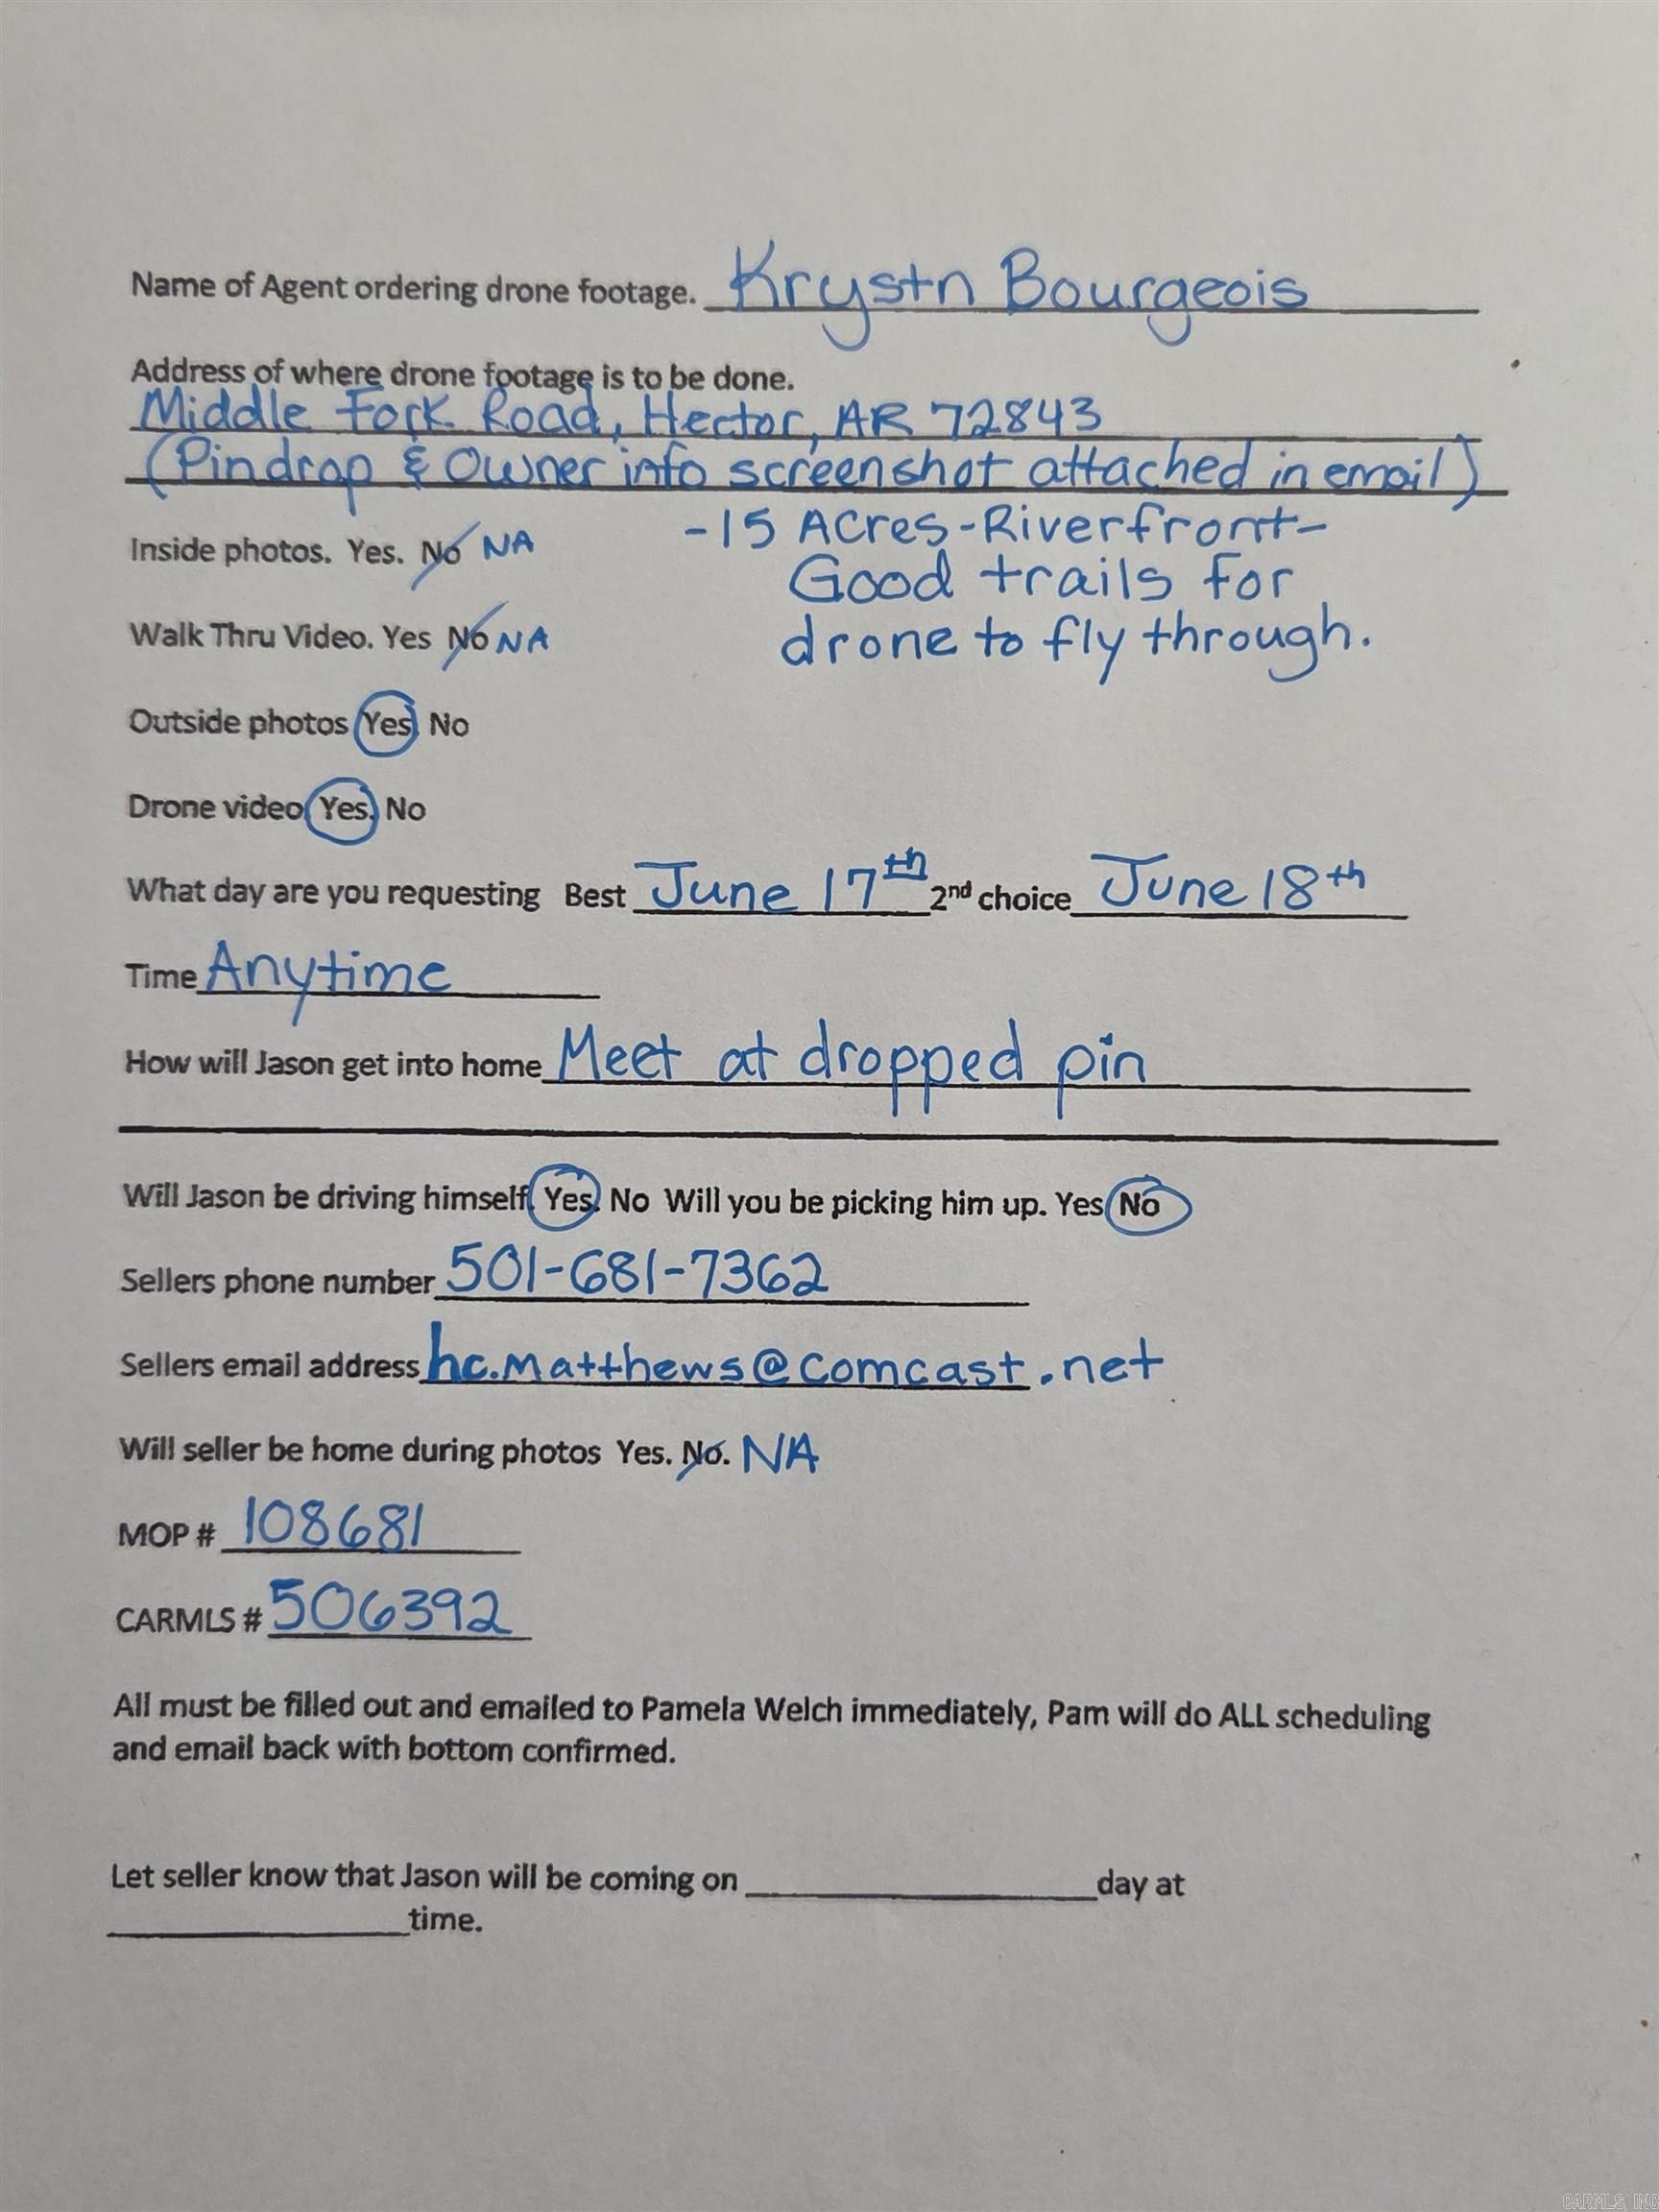 Name of Agent ordering drone footage. Krystn Bourgeois
Address of where drone footage is to be done.
Middle Fork Road, Hector, AR 72843
(Pindrop & Owner info screenshot attached in email)
-15 Acres-Riverfront-
Inside photos. Yes. No NA
Good trails for
Walk Thru Video. Yes No NA
drone to fly through.
Outside photos Yes. No
Drone video Yes. No
What day are you requesting Best June 17th 2nd choice June 18th
Time Anytime
How will Jason get into home Meet at dropped pin
Will Jason be driving himself. Yes. No Will you be picking him up. Yes No
Sellers phone number 501-681-7362
Sellers email address hc.matthews@comcast.net
Will seller be home during photos Yes. No. NA
MOP # 108681
CARMLS # 506392
All must be filled out and emailed to Pamela Welch immediately, Pam will do ALL scheduling
and email back with bottom confirmed.
Let seller know that Jason will be coming on ____________________day at
__________________time.
CARMLS INC